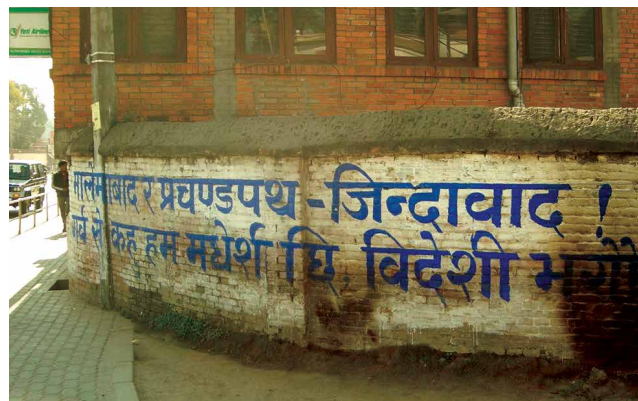 Yeti Airlines
मालेमावाद र प्रचण्डपथ - जिन्दावाद !
गर्व से कह हम मधेशी छि, विदेशी